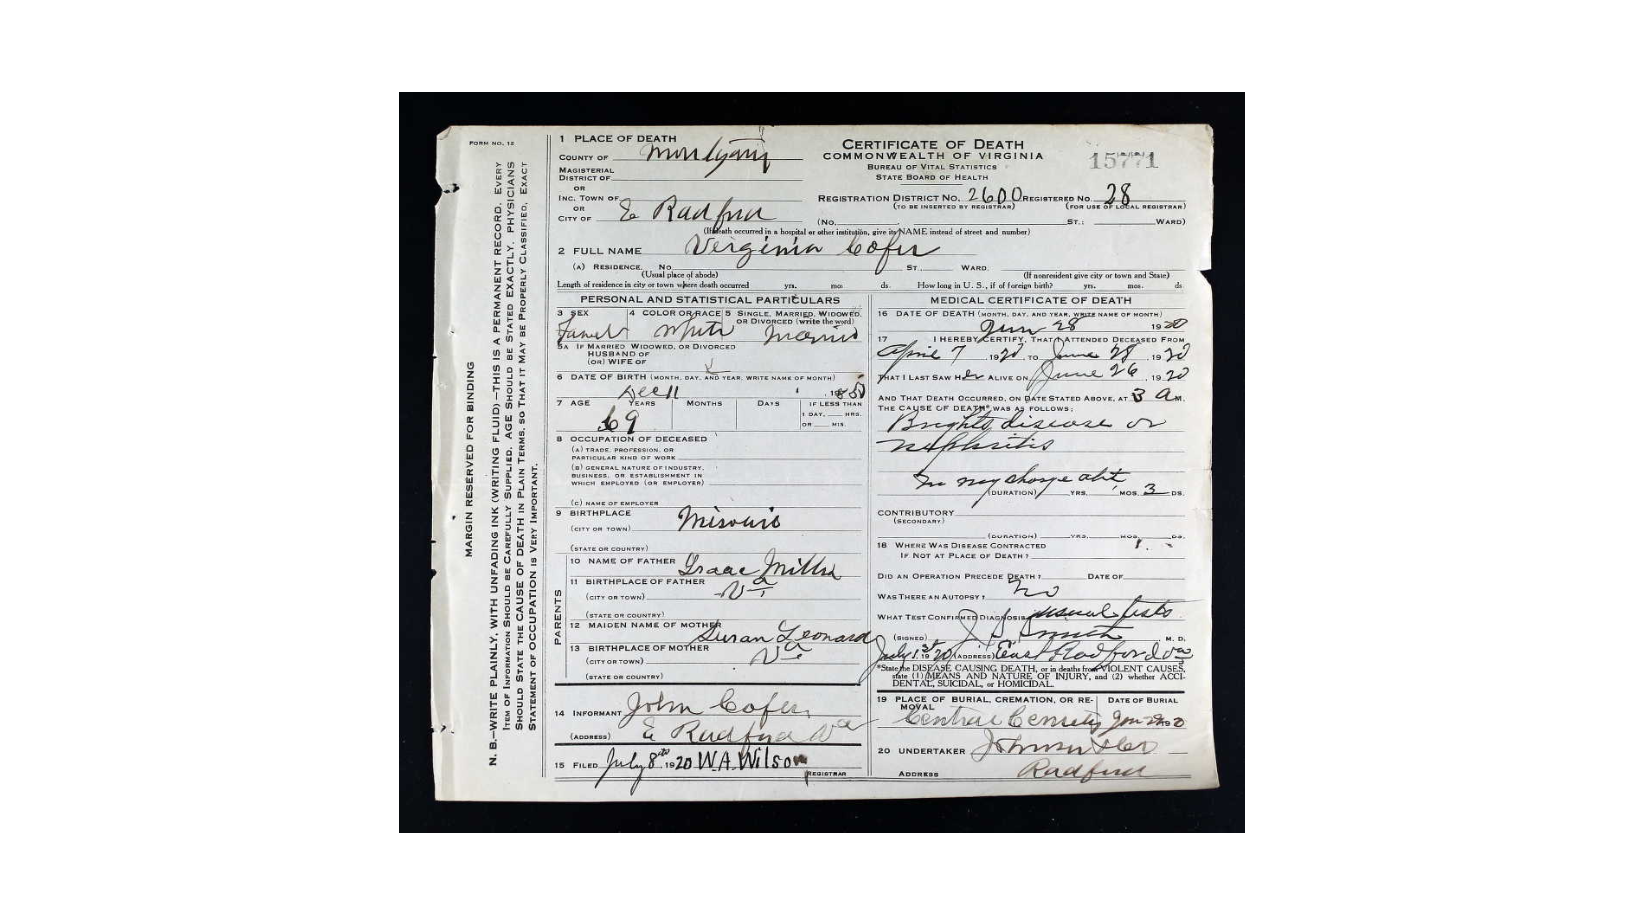 FORM NO. 12
MARGIN RESERVED FOR BINDING
N. B.—WRITE PLAINLY, WITH UNFADING INK (WRITING FLUID)—THIS IS A PERMANENT RECORD. EVERY
ITEM OF INFORMATION SHOULD BE CAREFULLY SUPPLIED. AGE SHOULD BE STATED EXACTLY. PHYSICIANS
SHOULD STATE THE CAUSE OF DEATH IN PLAIN TERMS, SO THAT IT MAY BE PROPERLY CLASSIFIED, EXACT
STATEMENT OF OCCUPATION IS VERY IMPORTANT.
1 PLACE OF DEATH
COUNTY OF
MAGISTERIAL
DISTRICT OF
OR
INC. TOWN OF
OR
CITY OF E Radford
CERTIFICATE OF DEATH
COMMONWEALTH OF VIRGINIA
BUREAU OF VITAL STATISTICS
STATE BOARD OF HEALTH
15771
REGISTRATION DISTRICT NO. 2600 REGISTERED NO. 28
(TO BE INSERTED BY REGISTRAR) (FOR USE OF LOCAL REGISTRAR)
(No. ST.; WARD)
(If death occurred in a hospital or other institution, give its NAME instead of street and number)
2 FULL NAME Virginia Cofer
(A) RESIDENCE. No. ST., WARD.
(Usual place of abode) (If nonresident give city or town and State)
Length of residence in city or town where death occurred yrs. mos. ds. How long in U. S., if of foreign birth? yrs. mos. ds.
PERSONAL AND STATISTICAL PARTICULARS
3 SEX 4 COLOR OR RACE 5 SINGLE, MARRIED, WIDOWED,
OR DIVORCED (write the word)
White
5A IF MARRIED, WIDOWED, OR DIVORCED
HUSBAND OF
(OR) WIFE OF
6 DATE OF BIRTH (MONTH, DAY, AND YEAR, WRITE NAME OF MONTH)
Dec 11 1850
7 AGE YEARS MONTHS DAYS IF LESS THAN
1 DAY, HRS.
OR MIN.
69
8 OCCUPATION OF DECEASED
(A) TRADE, PROFESSION, OR
PARTICULAR KIND OF WORK
(B) GENERAL NATURE OF INDUSTRY,
BUSINESS, OR ESTABLISHMENT IN
WHICH EMPLOYED (OR EMPLOYER)
(C) NAME OF EMPLOYER
9 BIRTHPLACE
(CITY OR TOWN) Misouri
(STATE OR COUNTRY)
PARENTS
10 NAME OF FATHER Isaac Miller
11 BIRTHPLACE OF FATHER
(CITY OR TOWN) Va
(STATE OR COUNTRY)
12 MAIDEN NAME OF MOTHER Susan Leonard
13 BIRTHPLACE OF MOTHER
(CITY OR TOWN) Va
(STATE OR COUNTRY)
14 INFORMANT John Cofer
(ADDRESS) E Radford Va
15 FILED July 8 1920 W.A. Wilson
REGISTRAR
MEDICAL CERTIFICATE OF DEATH
16 DATE OF DEATH (MONTH, DAY, AND YEAR, WRITE NAME OF MONTH)
June 28 1920
17 I HEREBY CERTIFY, THAT I ATTENDED DECEASED FROM
April 7 1920 TO June 28 1920
THAT I LAST SAW Her ALIVE ON June 26 1920
AND THAT DEATH OCCURRED, ON DATE STATED ABOVE, AT 3 A M.
THE CAUSE OF DEATH* WAS AS FOLLOWS:
Brights disease or
nephritis
In my charge abt
(DURATION) YRS. MOS. 3 DS.
CONTRIBUTORY
(SECONDARY)
(DURATION) YRS. MOS. DS.
18 WHERE WAS DISEASE CONTRACTED
IF NOT AT PLACE OF DEATH?
DID AN OPERATION PRECEDE DEATH? DATE OF
WAS THERE AN AUTOPSY? no
WHAT TEST CONFIRMED DIAGNOSIS usual tests
(SIGNED) J. S. Smith M. D.
July 1st 1920 (ADDRESS) East Radford Va
*State the DISEASE CAUSING DEATH, or in deaths from VIOLENT CAUSES,
state (1) MEANS AND NATURE OF INJURY, and (2) whether ACCI-
DENTAL, SUICIDAL, or HOMICIDAL.
19 PLACE OF BURIAL, CREMATION, OR RE- DATE OF BURIAL
MOVAL
Central Cemetery
20 UNDERTAKER
ADDRESS Radford